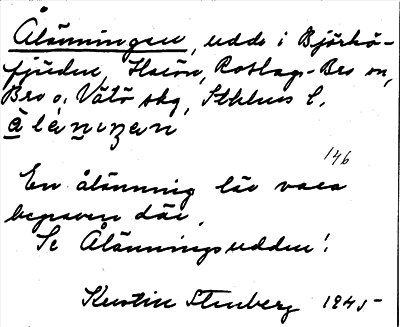 Ålänningen, udde i Björkö-
fjärden, Harön, Roslags-Bro sn,
Bro o. Vätö skg, Sthlms l.
å̀lénıŋən
146
En ålänning lär vara
begraven där.
Se Ålänningsudden!
Kerstin Stenberg 1945